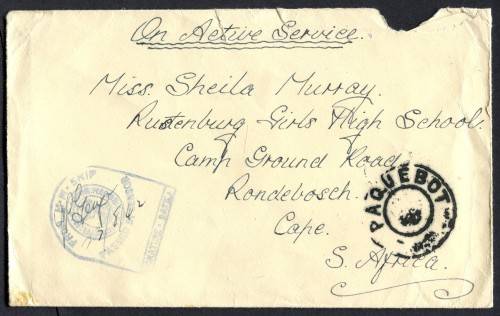 On Active Service.
Miss. Sheila Murray.
Rustenburg Girls High School.
Camp Ground Road
Rondebosch.
Cape.
S. Africa.
PAQUEBOT
SHIP